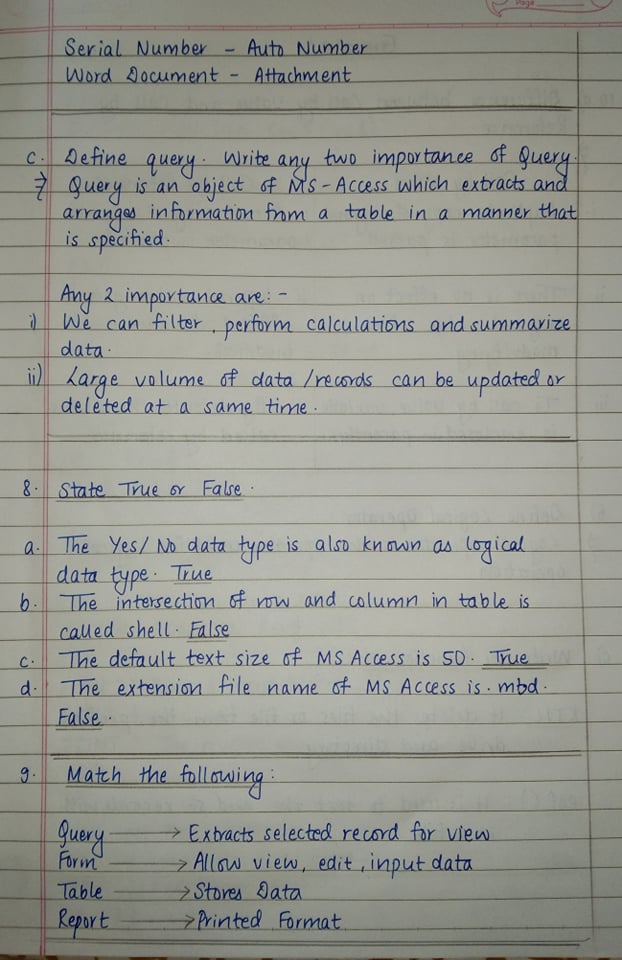 Page
Serial Number - Auto Number
Word Document - Attachment
c. Define query. Write any two importance of Query.
→ Query is an object of MS-Access which extracts and
arranges information from a table in a manner that
is specified.
Any 2 importance are:-
i) We can filter, perform calculations and summarize
data.
ii) Large volume of data/records can be updated or
deleted at a same time.
8. State True or False.
a. The Yes/No data type is also known as logical
data type. True
b. The intersection of row and column in table is
called shell. False
c. The default text size of MS Access is 50. True
d. The extension file name of MS Access is .mbd.
False.
9. Match the following:
Query → Extracts selected record for view
Form → Allow view, edit, input data
Table → Stores Data
Report → Printed Format